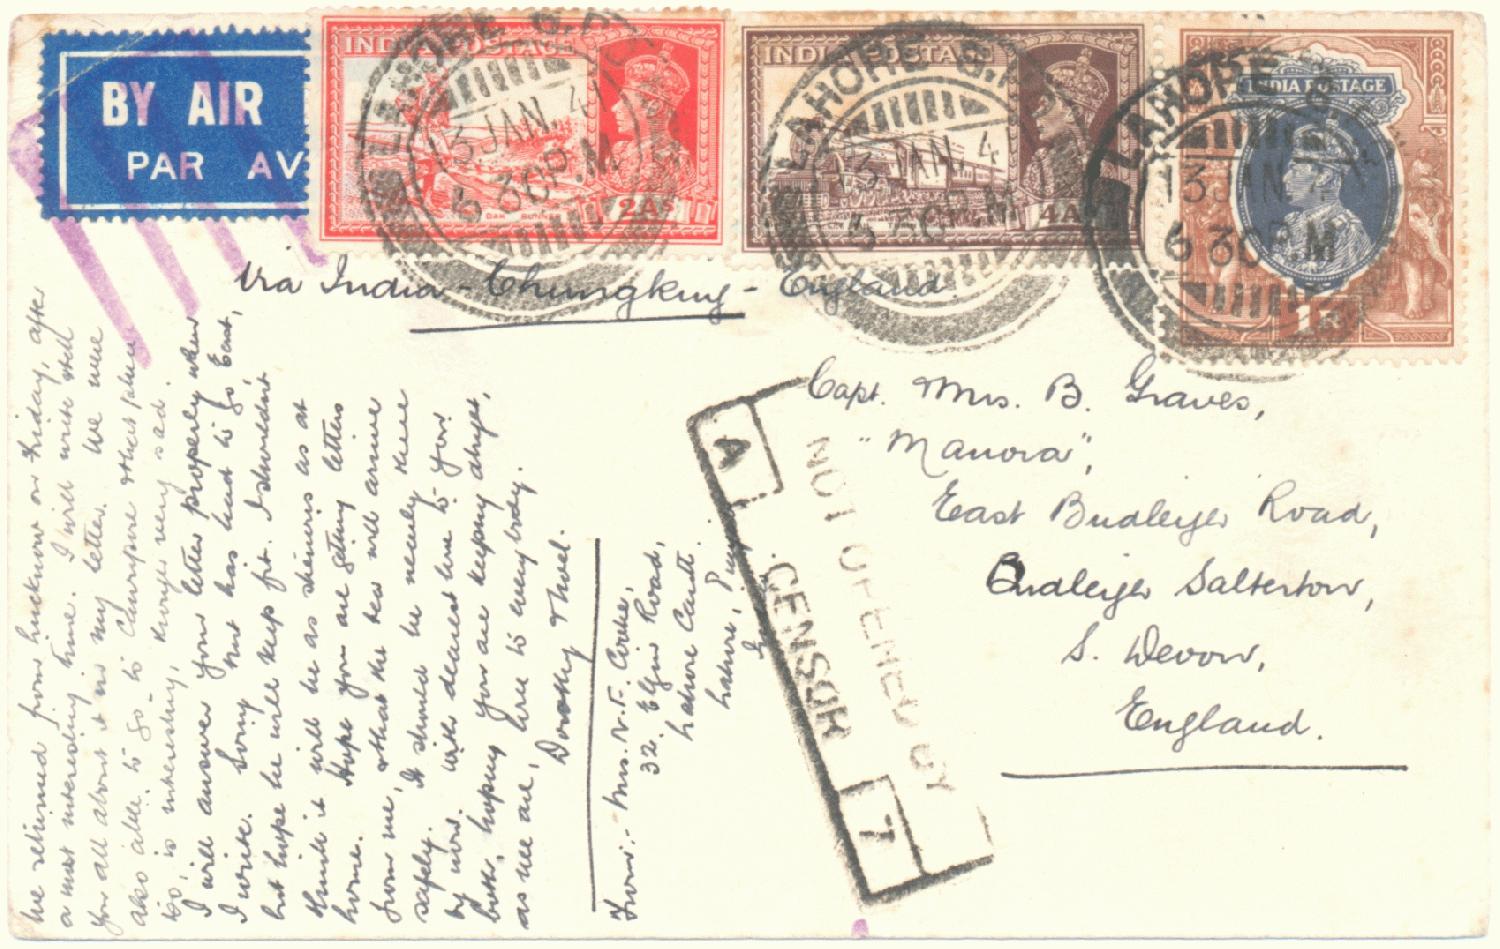 BY AIR
PAR AV
INDIA POSTAGE
DAK RUNNER
2As
LAHORE G.P.O.
13 JAN. 41
6 30P.M
INDIA POSTAGE
4As
LAHORE G.P.
13 JAN. 4
6 30P.M
INDIA POSTAGE
1R
LAHORE
13 JAN. 4
6 30P.M
Via India - Chungking - England
Capt. Mrs. B. Graves,
"Manora",
East Budleigh Road,
Budleigh Salterton,
S. Devon,
England.
A
NOT OPENED BY
CENSOR
7
We returned from Lucknow on Friday, after
a most interesting time. I will write & tell
you all about it in my letter. We were
also able to go to Cawnpore & that place
too, is interesting, though very sad.
I will answer your letter properly when
I write. has had to go East,
but hope he will keep fit. I shouldn't
think it will be as strenuous as at
home. Hope you are getting letters
from me, & that the tea will arrive
safely. It should be nearly there
by now. With dearest love to you
both, hoping you are keeping alright,
as we are, love to everybody.
Dorothy &
From:- Mrs. N. F.
32. Elgin Road,
Lahore Cantt.
Lahore,